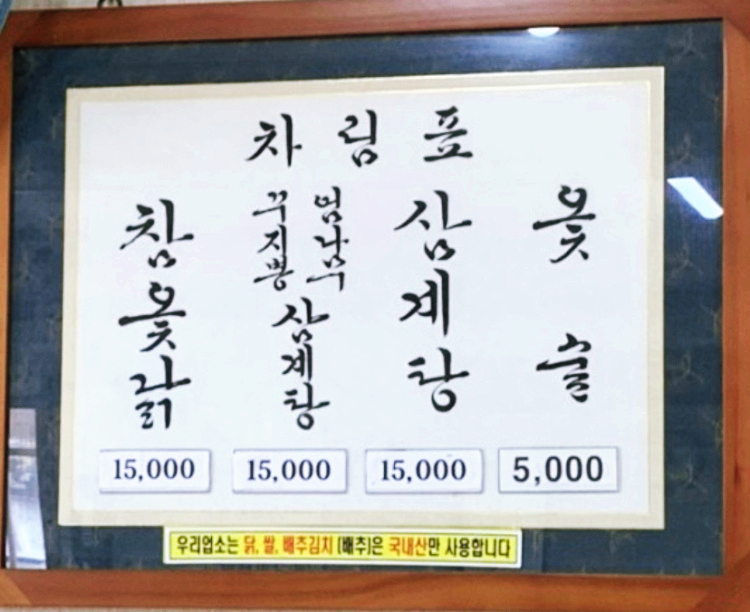 차림표
참옻닭
꾸지뽕
엄나무
삼계탕
삼계탕
옻술
15,000
15,000
15,000
5,000
우리업소는 닭, 쌀, 배추김치 (배추)은 국내산만 사용합니다